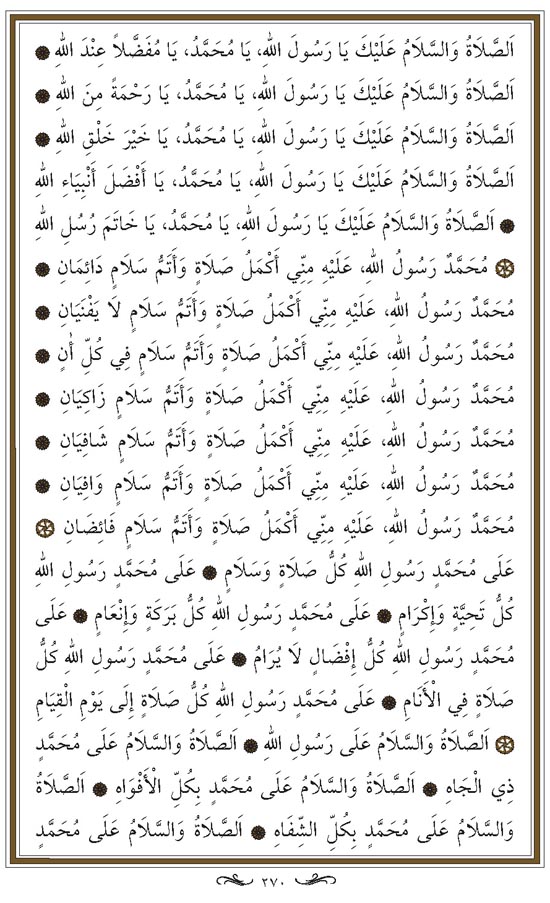 اَلصَّلَاةُ وَالسَّلَامُ عَلَيْكَ يَا رَسُولَ اللهِ، يَا مُحَمَّدُ، يَا مُفَضَّلاً عِنْدَ اللهِ
اَلصَّلَاةُ وَالسَّلَامُ عَلَيْكَ يَا رَسُولَ اللهِ، يَا مُحَمَّدُ، يَا رَحْمَةً مِنَ اللهِ
اَلصَّلَاةُ وَالسَّلَامُ عَلَيْكَ يَا رَسُولَ اللهِ، يَا مُحَمَّدُ، يَا خَيْرَ خَلْقِ اللهِ
اَلصَّلَاةُ وَالسَّلَامُ عَلَيْكَ يَا رَسُولَ اللهِ، يَا مُحَمَّدُ، يَا أَفْضَلَ أَنْبِيَاءِ اللهِ
اَلصَّلَاةُ وَالسَّلَامُ عَلَيْكَ يَا رَسُولَ اللهِ، يَا مُحَمَّدُ، يَا خَاتَمَ رُسُلِ اللهِ
مُحَمَّدٌ رَسُولُ اللهِ، عَلَيْهِ مِنِّي أَكْمَلُ صَلَاةٍ وَأَتَمُّ سَلَامٍ دَائِمَانِ
مُحَمَّدٌ رَسُولُ اللهِ، عَلَيْهِ مِنِّي أَكْمَلُ صَلَاةٍ وَأَتَمُّ سَلَامٍ لَا يَفْنَيَانِ
مُحَمَّدٌ رَسُولُ اللهِ، عَلَيْهِ مِنِّي أَكْمَلُ صَلَاةٍ وَأَتَمُّ سَلَامٍ فِي كُلِّ أٰنٍ
مُحَمَّدٌ رَسُولُ اللهِ، عَلَيْهِ مِنِّي أَكْمَلُ صَلَاةٍ وَأَتَمُّ سَلَامٍ زَاكِيَانِ
مُحَمَّدٌ رَسُولُ اللهِ، عَلَيْهِ مِنِّي أَكْمَلُ صَلَاةٍ وَأَتَمُّ سَلَامٍ شَافِيَانِ
مُحَمَّدٌ رَسُولُ اللهِ، عَلَيْهِ مِنِّي أَكْمَلُ صَلَاةٍ وَأَتَمُّ سَلَامٍ وَافِيَانِ
مُحَمَّدٌ رَسُولُ اللهِ، عَلَيْهِ مِنِّي أَكْمَلُ صَلَاةٍ وَأَتَمُّ سَلَامٍ فَائِضَانِ
عَلَى مُحَمَّدٍ رَسُولِ اللهِ كُلُّ صَلَاةٍ وَسَلَامٍ عَلَى مُحَمَّدٍ رَسُولِ اللهِ
كُلُّ تَحِيَّةٍ وَإِكْرَامٍ عَلَى مُحَمَّدٍ رَسُولِ اللهِ كُلُّ بَرَكَةٍ وَإِنْعَامٍ عَلَى
مُحَمَّدٍ رَسُولِ اللهِ كُلُّ إِفْضَالٍ لَا يُرَامُ عَلَى مُحَمَّدٍ رَسُولِ اللهِ كُلُّ
صَلَاةٍ فِي الْأَنَامِ عَلَى مُحَمَّدٍ رَسُولِ اللهِ كُلُّ صَلَاةٍ إِلَى يَوْمِ الْقِيَامِ
اَلصَّلَاةُ وَالسَّلَامُ عَلَى رَسُولِ اللهِ اَلصَّلَاةُ وَالسَّلَامُ عَلَى مُحَمَّدٍ
ذِي الْجَاهِ اَلصَّلَاةُ وَالسَّلَامُ عَلَى مُحَمَّدٍ بِكُلِّ الْأَفْوَاهِ اَلصَّلَاةُ
وَالسَّلَامُ عَلَى مُحَمَّدٍ بِكُلِّ الشِّفَاهِ اَلصَّلَاةُ وَالسَّلَامُ عَلَى مُحَمَّدٍ
٢٧٠